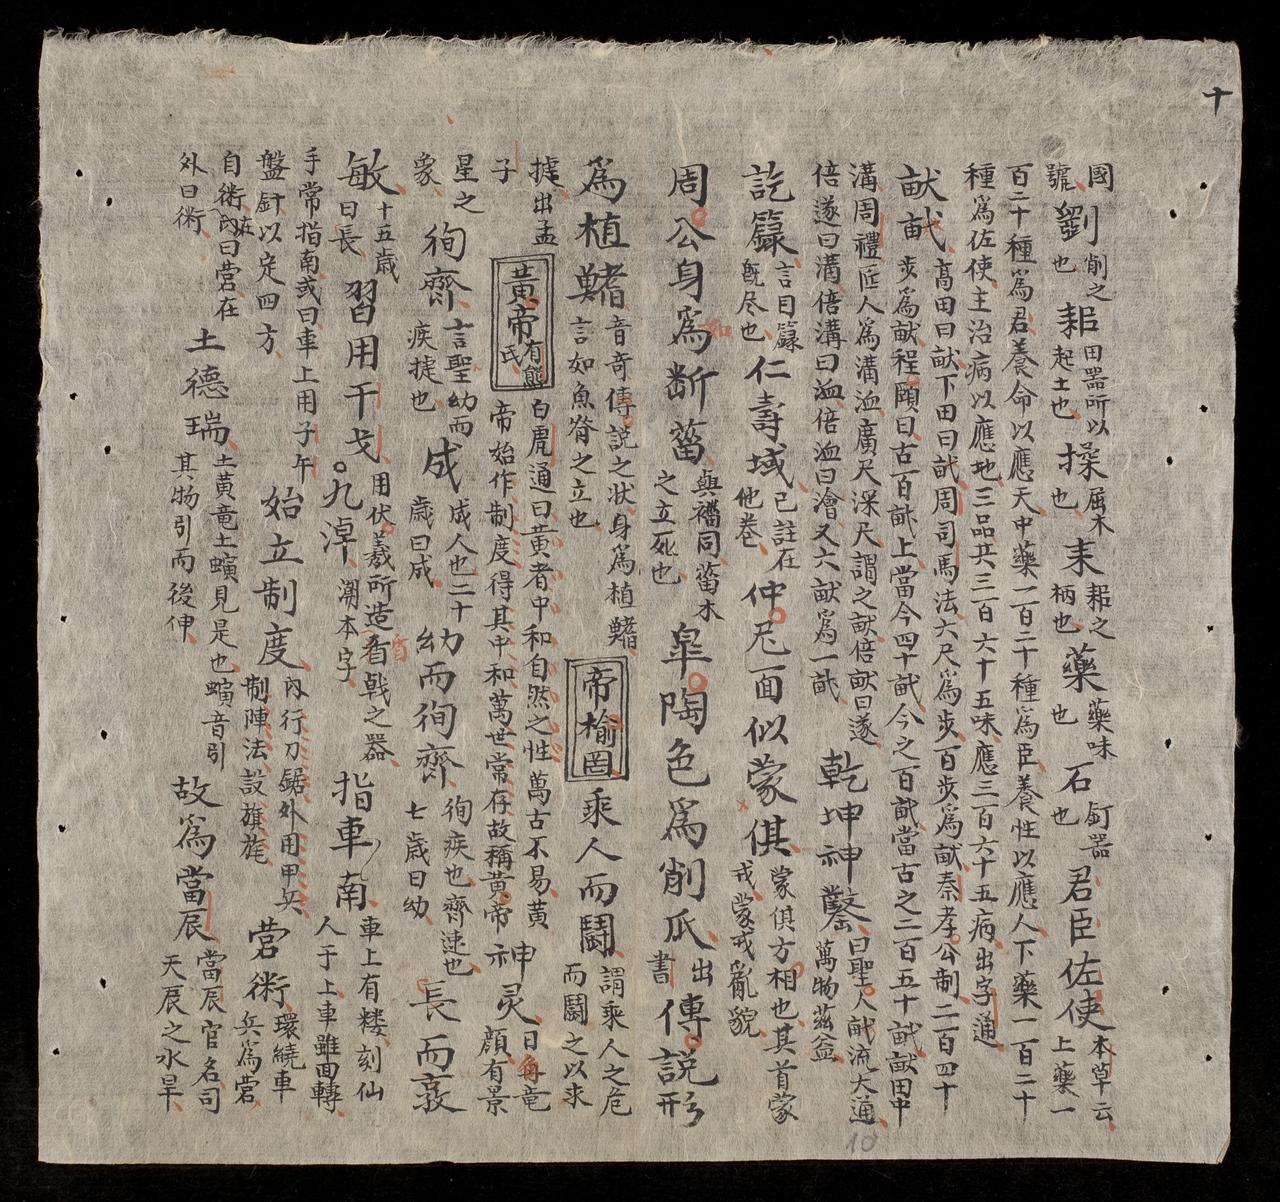 十
國號劉削之也耜田器所以起土也揉屈木也耒耜之柄也藥藥味也石針器也君臣佐使本草云上藥一
百二十種爲君養命以應天中藥一百二十種爲臣養性以應人下藥一百二十
種爲佐使主治病以應地三品共三百六十五味應三百六十五病出字通
献畝高田曰献下田曰畝周司馬法六尺爲步百步爲献秦孝公制二百四十
步爲献程頤曰古一百畝上當今四十畝今之百畝當古之二百五十畝献田中
溝周禮匠人爲溝洫廣尺深尺謂之献倍献曰遂
倍遂曰溝倍溝曰洫倍洫曰澮又六献爲一畝
乾坤神鑿曰聖人献流大通萬物茲益
訖籙言目籙既尽也仁壽域已註在他巻仲尼面似蒙倛蒙倛方相也其首蒙戎蒙戎亂貌
周公身爲斷菑與椔同菑木之立死也皐陶色爲削瓜出書傳説形
如
爲植鰭音奇傳説之状身爲植鰭言如魚脊之立也
帝楡罔
乘人而鬪謂乘人之危而鬪之以求
㨗出孟子
黃帝有熊氏
白虎通曰黃者中和自然之性萬古不易黃
帝始作制度得其中和萬世常存故稱黃帝
神灵日角竜顔有景
星之象徇齊言聖幼而疾㨗也成成人也二十歲曰成幼而徇齊徇疾也齊速也七歲曰幼長而敦
敏十五歲曰長習用干戈用伏羲所造盾戟之器
盾
九淖潮本字指車南車上有楼刻仙人于上車雖回轉
手常指南或曰車上用子午
盤針以定四方
始立制度内行刀鋸外用甲兵制陣法設旗旄營術環繞車兵爲營
自術在内曰營在外曰術
土德瑞土黃竜土螾見是也螾音引其物引而後伸故爲當辰當辰官名司天辰之水旱
10